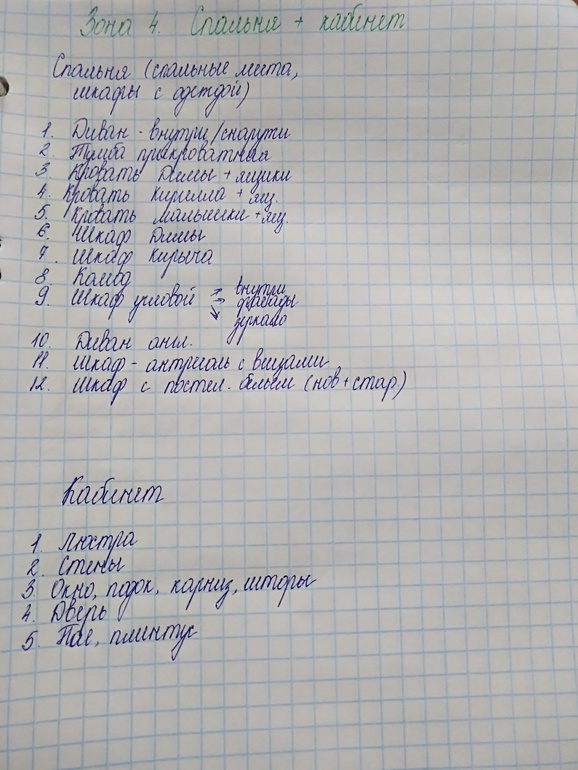 Зона 4. Спальня + кабинет
Спальня (спальные места,
шкафы с одеждой)
1. Диван - внутри/снаружи
2. Тумба прикроватная
3 Кровать Димы + ящики
4. Кровать Кирилла + ящ.
5. Кровать малышки + ящ.
6. Шкаф Димы
7. Шкаф Кирыча
8 Комод
9. Шкаф угловой → внутри
→ фасады
↘ зеркало
10. Диван англ.
11. Шкаф - антресоль с вещами
12. Шкаф с постел. бельем (нов + стар)
Кабинет
1. Люстра
2. Стены
3. Окно, подок, карниз, шторы
4. Дверь
5. Пол, плинтус